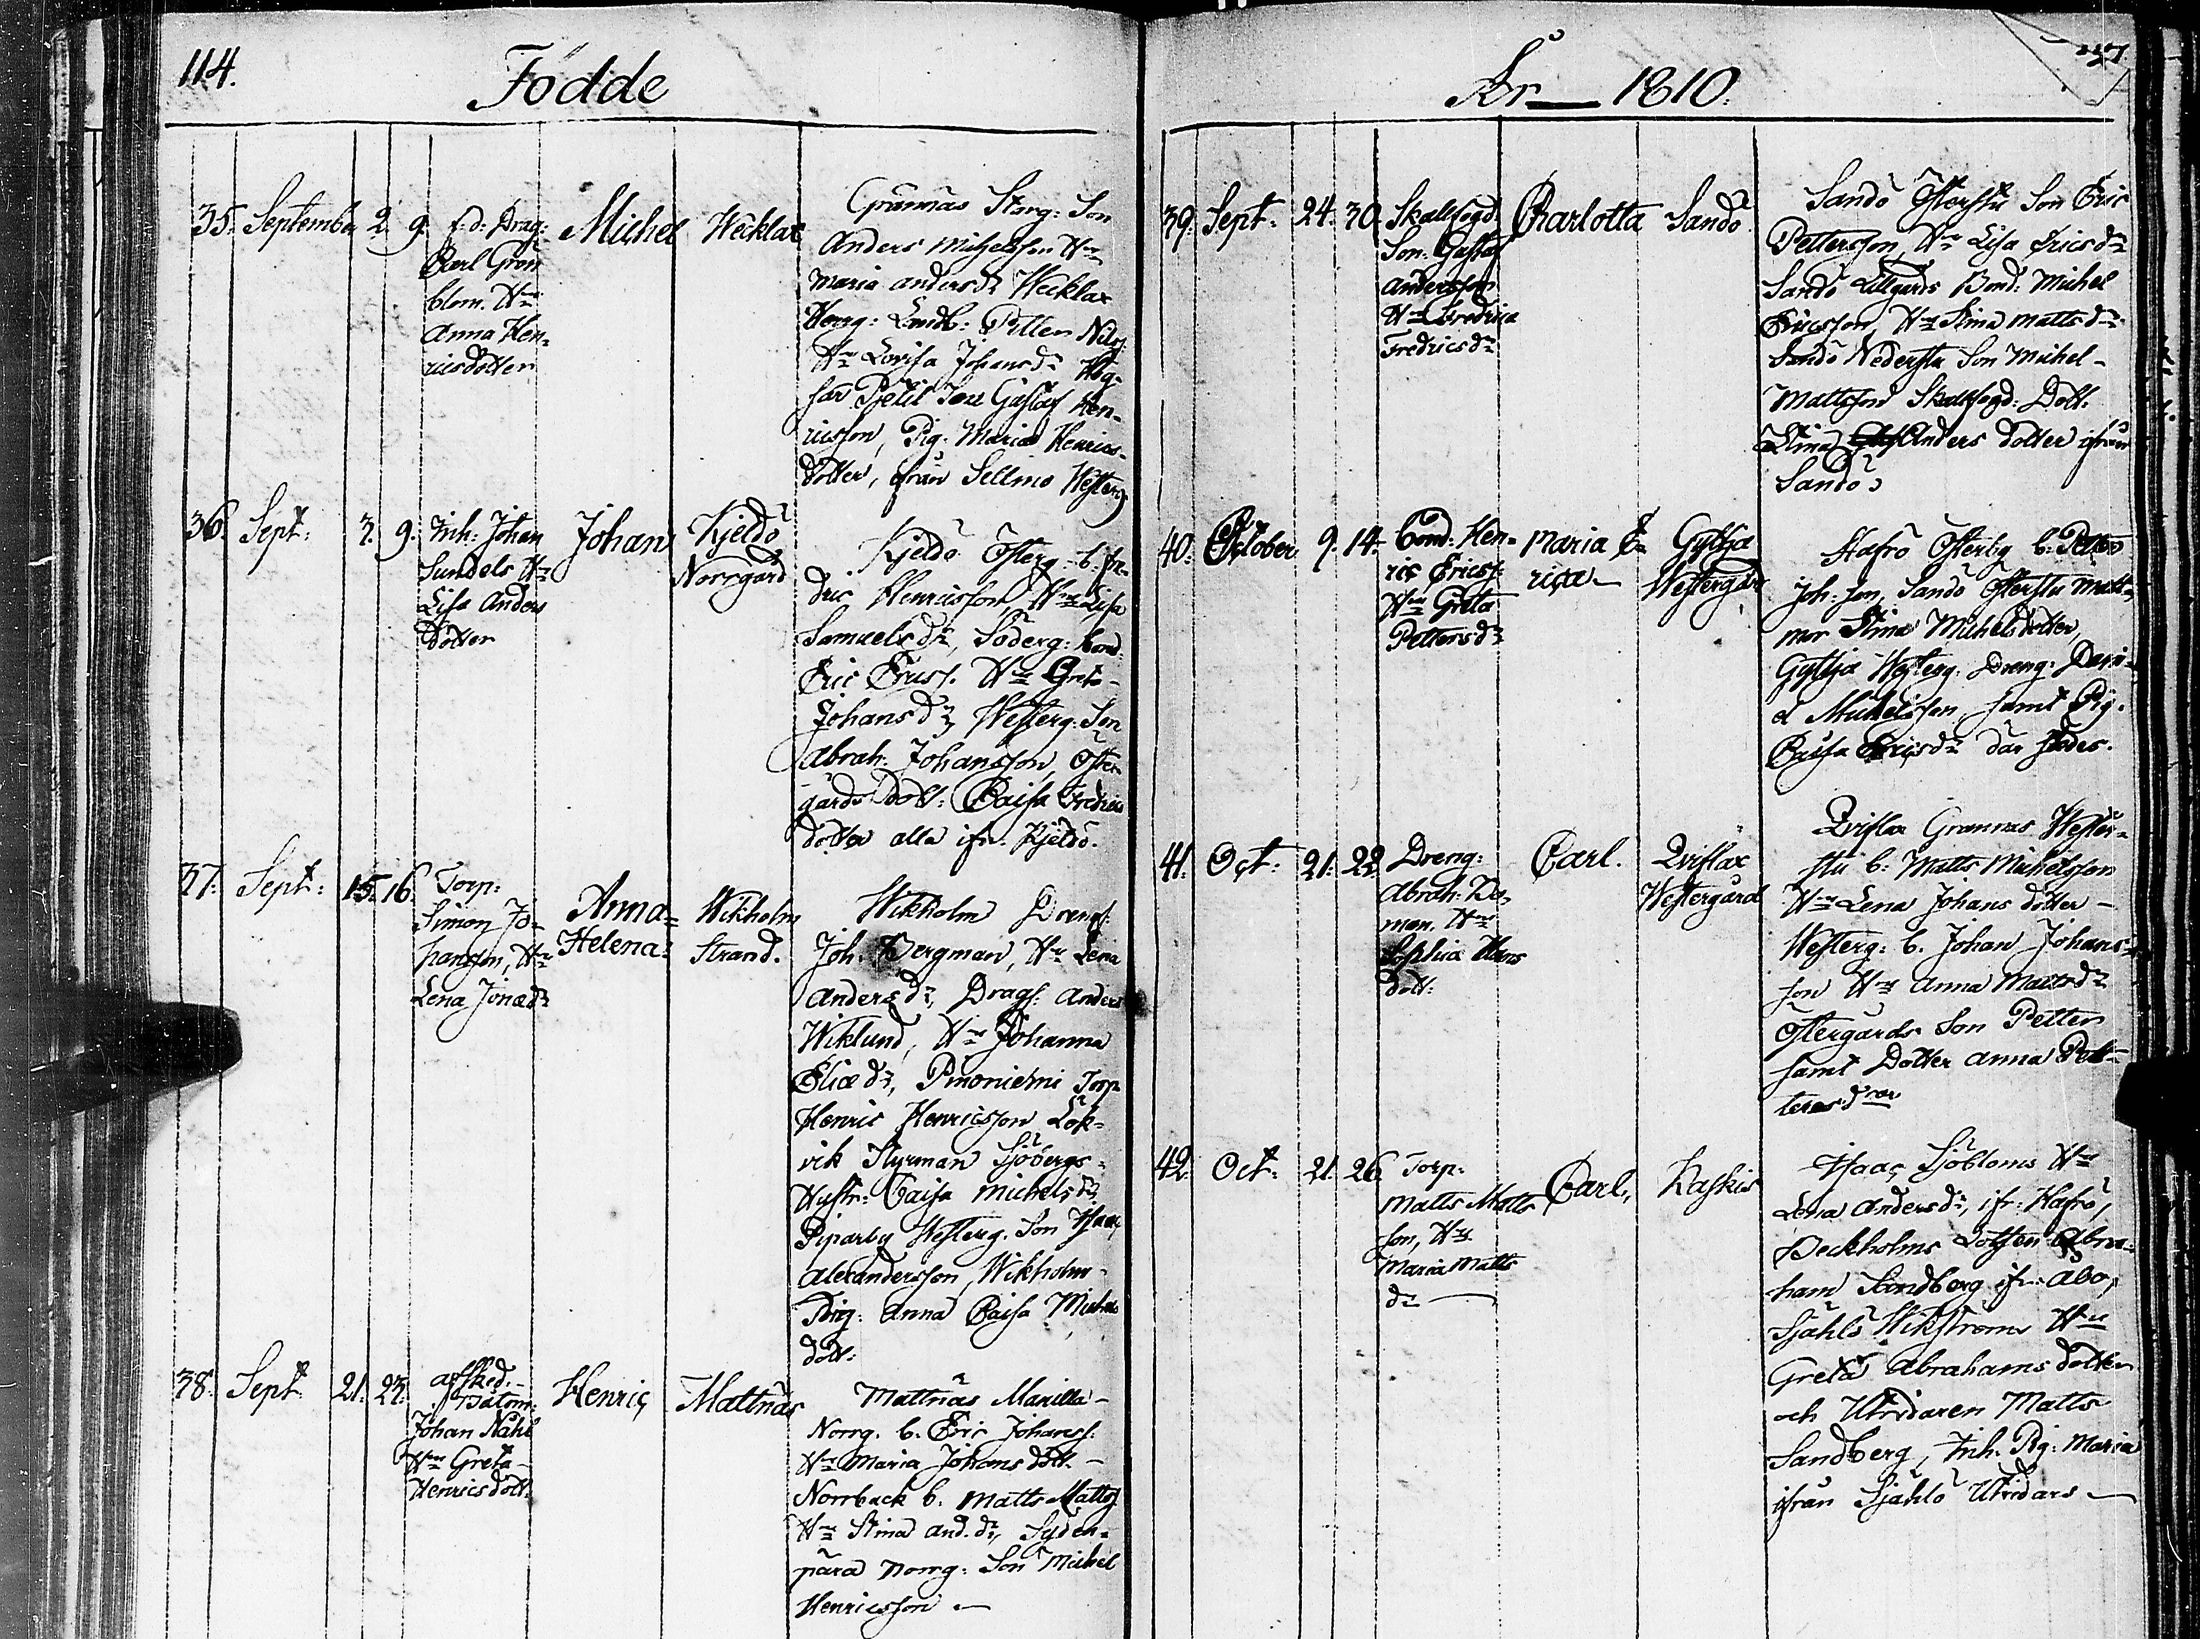 114.
Födde
35. September 2. 9.
f: d: Drag:
Carl Grön
blom. Hu
Anna Hen=
ricsdotter
Michel
Wecklax
Grännäs Storg: Son
Anders Michelsson Hu
Maria Andersdr Wecklax
Norrg: Petter Nilss
Hu Lovisa Johansdr Hög=
sar Gustaf Hen=
ricsson, Pig. Maria Henrics=
dotter, ifrån Sellmo Westerg
36. Sept: 7. 9.
Inh: Johan
Sundels Hu
Lisa Anders
dotter
Johan
Kjeldö
Norrgård
Kjeldö Österg. b. Fre=
dric Henricsson, Hu Lisa
Samuelsdr, Söderg: bond.
Eric Ericss. Hu Greta
Johansdr, Westerg: Son
Abrah: Johansson, Öster
gårds Dott: Caisa Fredrics
dotter alla ifr. Kjeldö.
37. Sept: 15. 16.
Torp:
Simon Jo=
hansson, Hu
Lena Jonædr
Anna=
Helena:
Wikholm
Strand.
Wikholm Drengs:
Joh. Bergman, Hu Lena
Andersdr, Drags: Anders
Wiklund, Hu Johanna
Eliædr, Torp
Henric Henricsson Lök=
vik Styrman Sjöbergs=
Hustr: Caisa Michelsdr
Piparby Westerg. Son Isaac
Alexandersson, Wikholm
Pig: Anna Caisa Michels
dott:
38. Sept. 21. 23.
afsked.
Båtsm:
Johan Nahl
Hu Greta
Henricsdott.
Henric
Mattnäs
Mattnäs Manilla
Norrg. b. Eric Johanss.
Hu Maria Johansdott.
Norrback b. Matts Mattss
Hu Stina And.dr, Syden=
pära Norrg: Son Michel
Henricsson —
År — 1810.
39. Sept: 24. 30.
Skallfogd.
Son: Gustaf
Andersson
Hu Fredrica
Fredricsdr
Charlotta
Sandö
Sandö Östersta Son Eric
Pettersson, Hu Lisa Ericsdr
Sandö Lillgårds Bond: Michel
Ericsson, Hu Stina Mattsdr
Sandö Nedersta Son Michel
Mattsson Skallfogd: Dott:
Stina Anders dotter ifrån
Sandö
40. October 9. 14.
Bond: Hen=
ric Ericss.
Hu Greta
Pettersdr
Maria E=
rica —
Gyttja
Westergård
Stafrö Österby b: Petter
Joh: son, Sandö Östersta Matt=
mor Stina Michelsdotter,
Gyttja Westerg: Dreng: Dani=
el Michelsson samt Pig.
Caisa Ericsdr där städes.
41. Oct: 21. 22.
Dreng:
Abrah:
man. Hu
Sophia Hans
dott:
Carl.
Qviflax
Westergård
Qviflax Grannas Westers=
sta b: Matts Michelsson
Hu Lena Johans dotter —
Westerg: b. Johan Johans=
son Hu Anna Mattsdr
Östergårds Son Petter
samt Dotter Anna Pet=
tersd
42. Oct: 21. 26.
Torp:
Matts Matts
son, Hu
Maria Matts
dr —
Carl,
Kaskis
Isaac Sjöbloms Hu
Lena Andersdr, ifr: Hafrö,
Beckholms Lotsen Abra=
ham Sandberg ifr: Åbo,
Sjählö Wikströms Hu
Greta Abrahamsdotter
och Utridaren Matts
Sandberg, Inh. Pig: Maria
ifrån Sjählö Utridars —